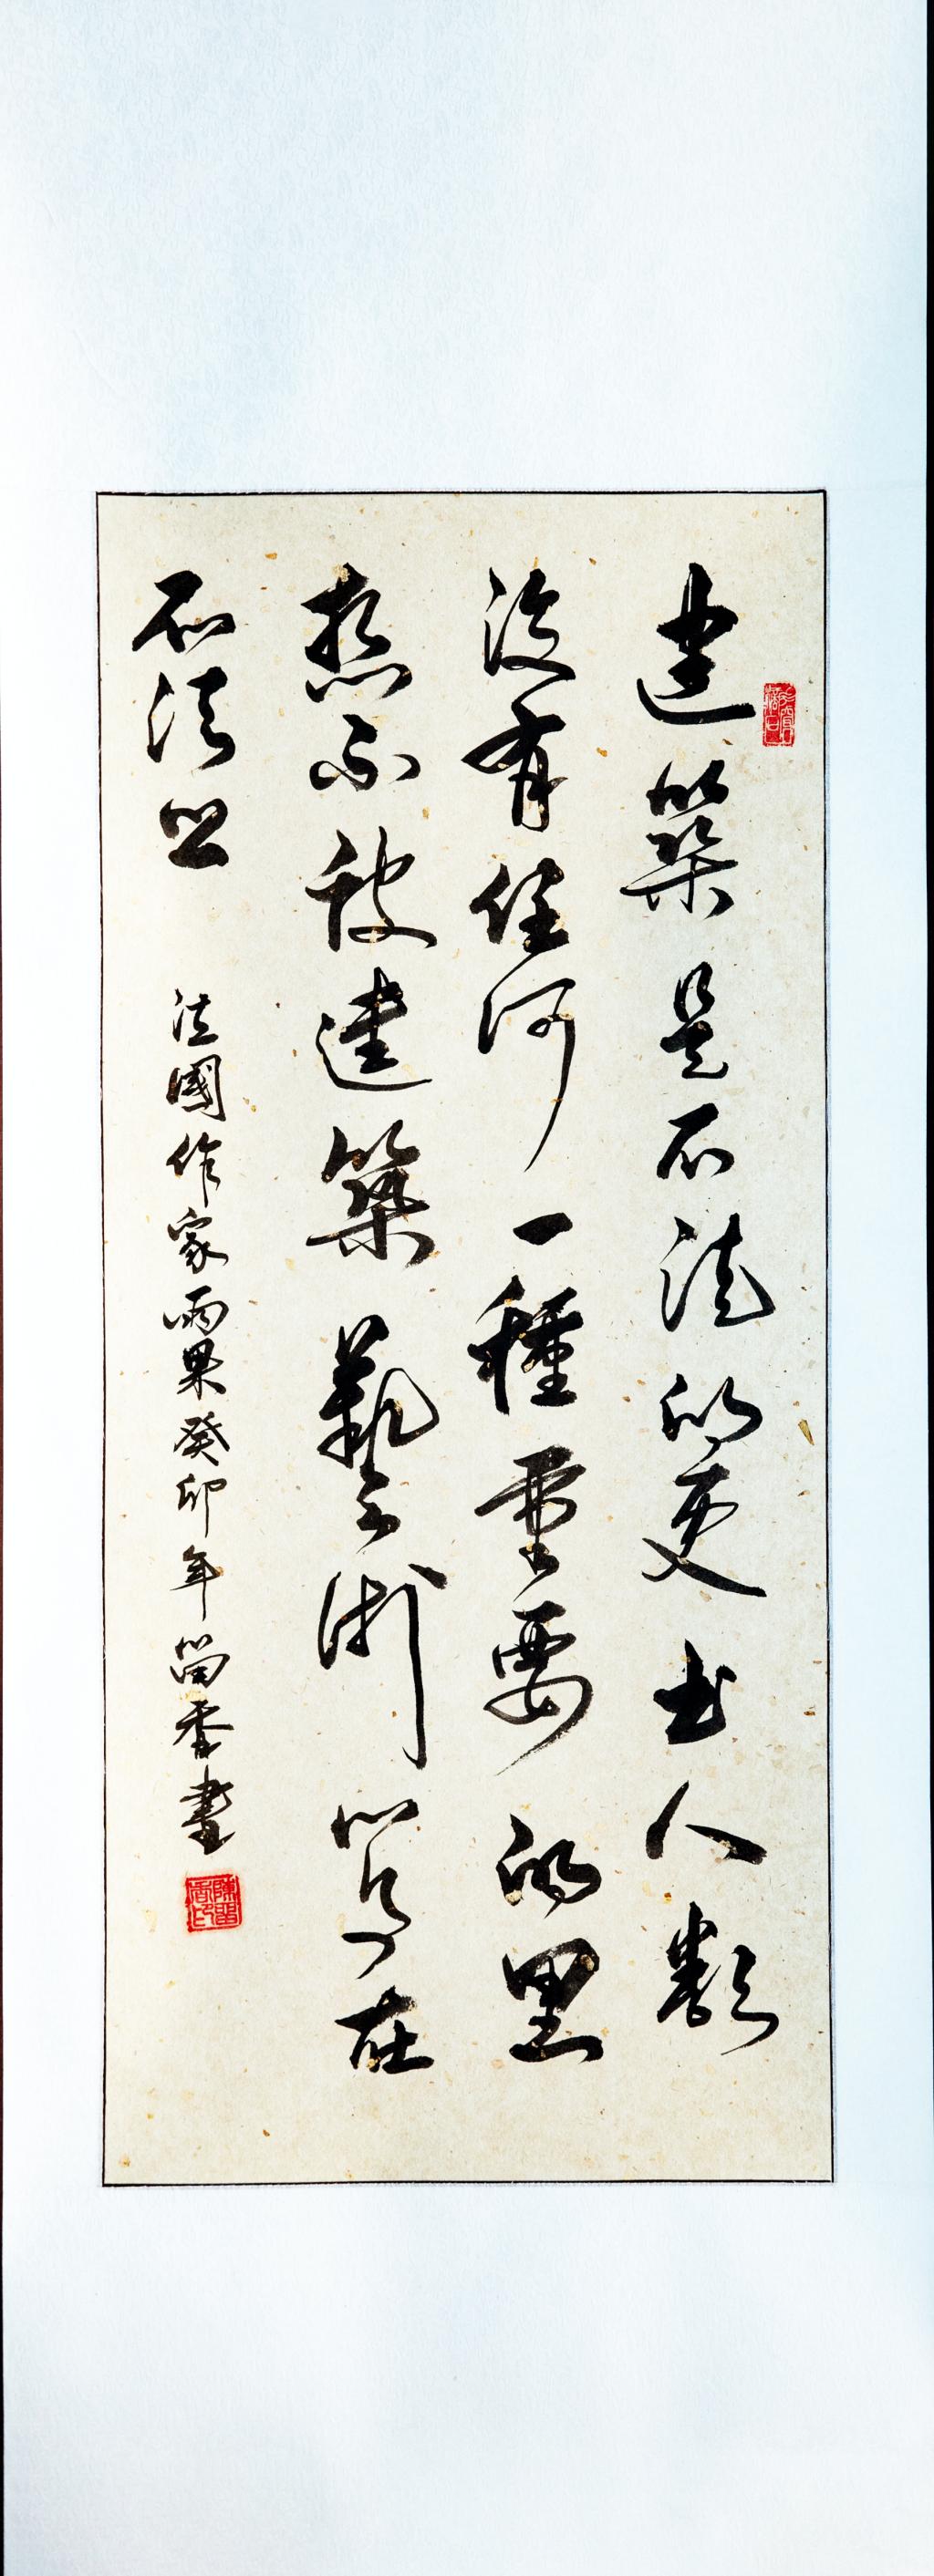 建築是石頭的史書人類
沒有任何一種重要的思
想不被建築藝術寫在
石頭上
法國作家雨果癸卯年尚香書